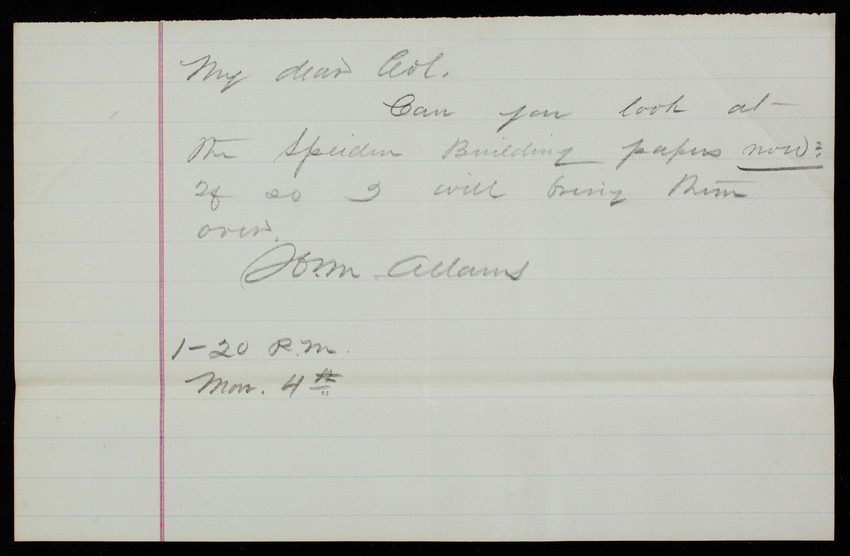 My dear Col.
Can you look at
the Speiden Building papers now?
If so I will bring them
over.
Adams
1-20 P.M.
Mon. 4th